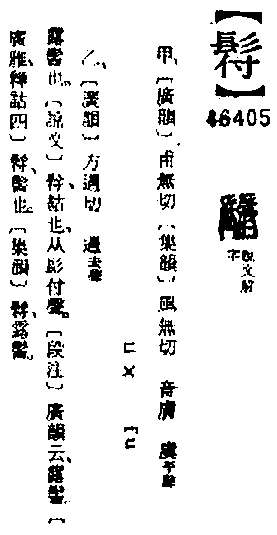 【髴】
46405
說文解字
甲、〔廣韻〕甫無切〔集韻〕風無切 音膚 虞平聲
ㄈㄨ ㄈㄨ
乙、〔廣韻〕方遇切 遇去聲
露髻也。〔說文〕髴、結也。从髟付聲。〔段注〕廣韻云、露髻。〔
廣雅、釋詁四〕髴、髻也。〔集韻〕髴、露髻。